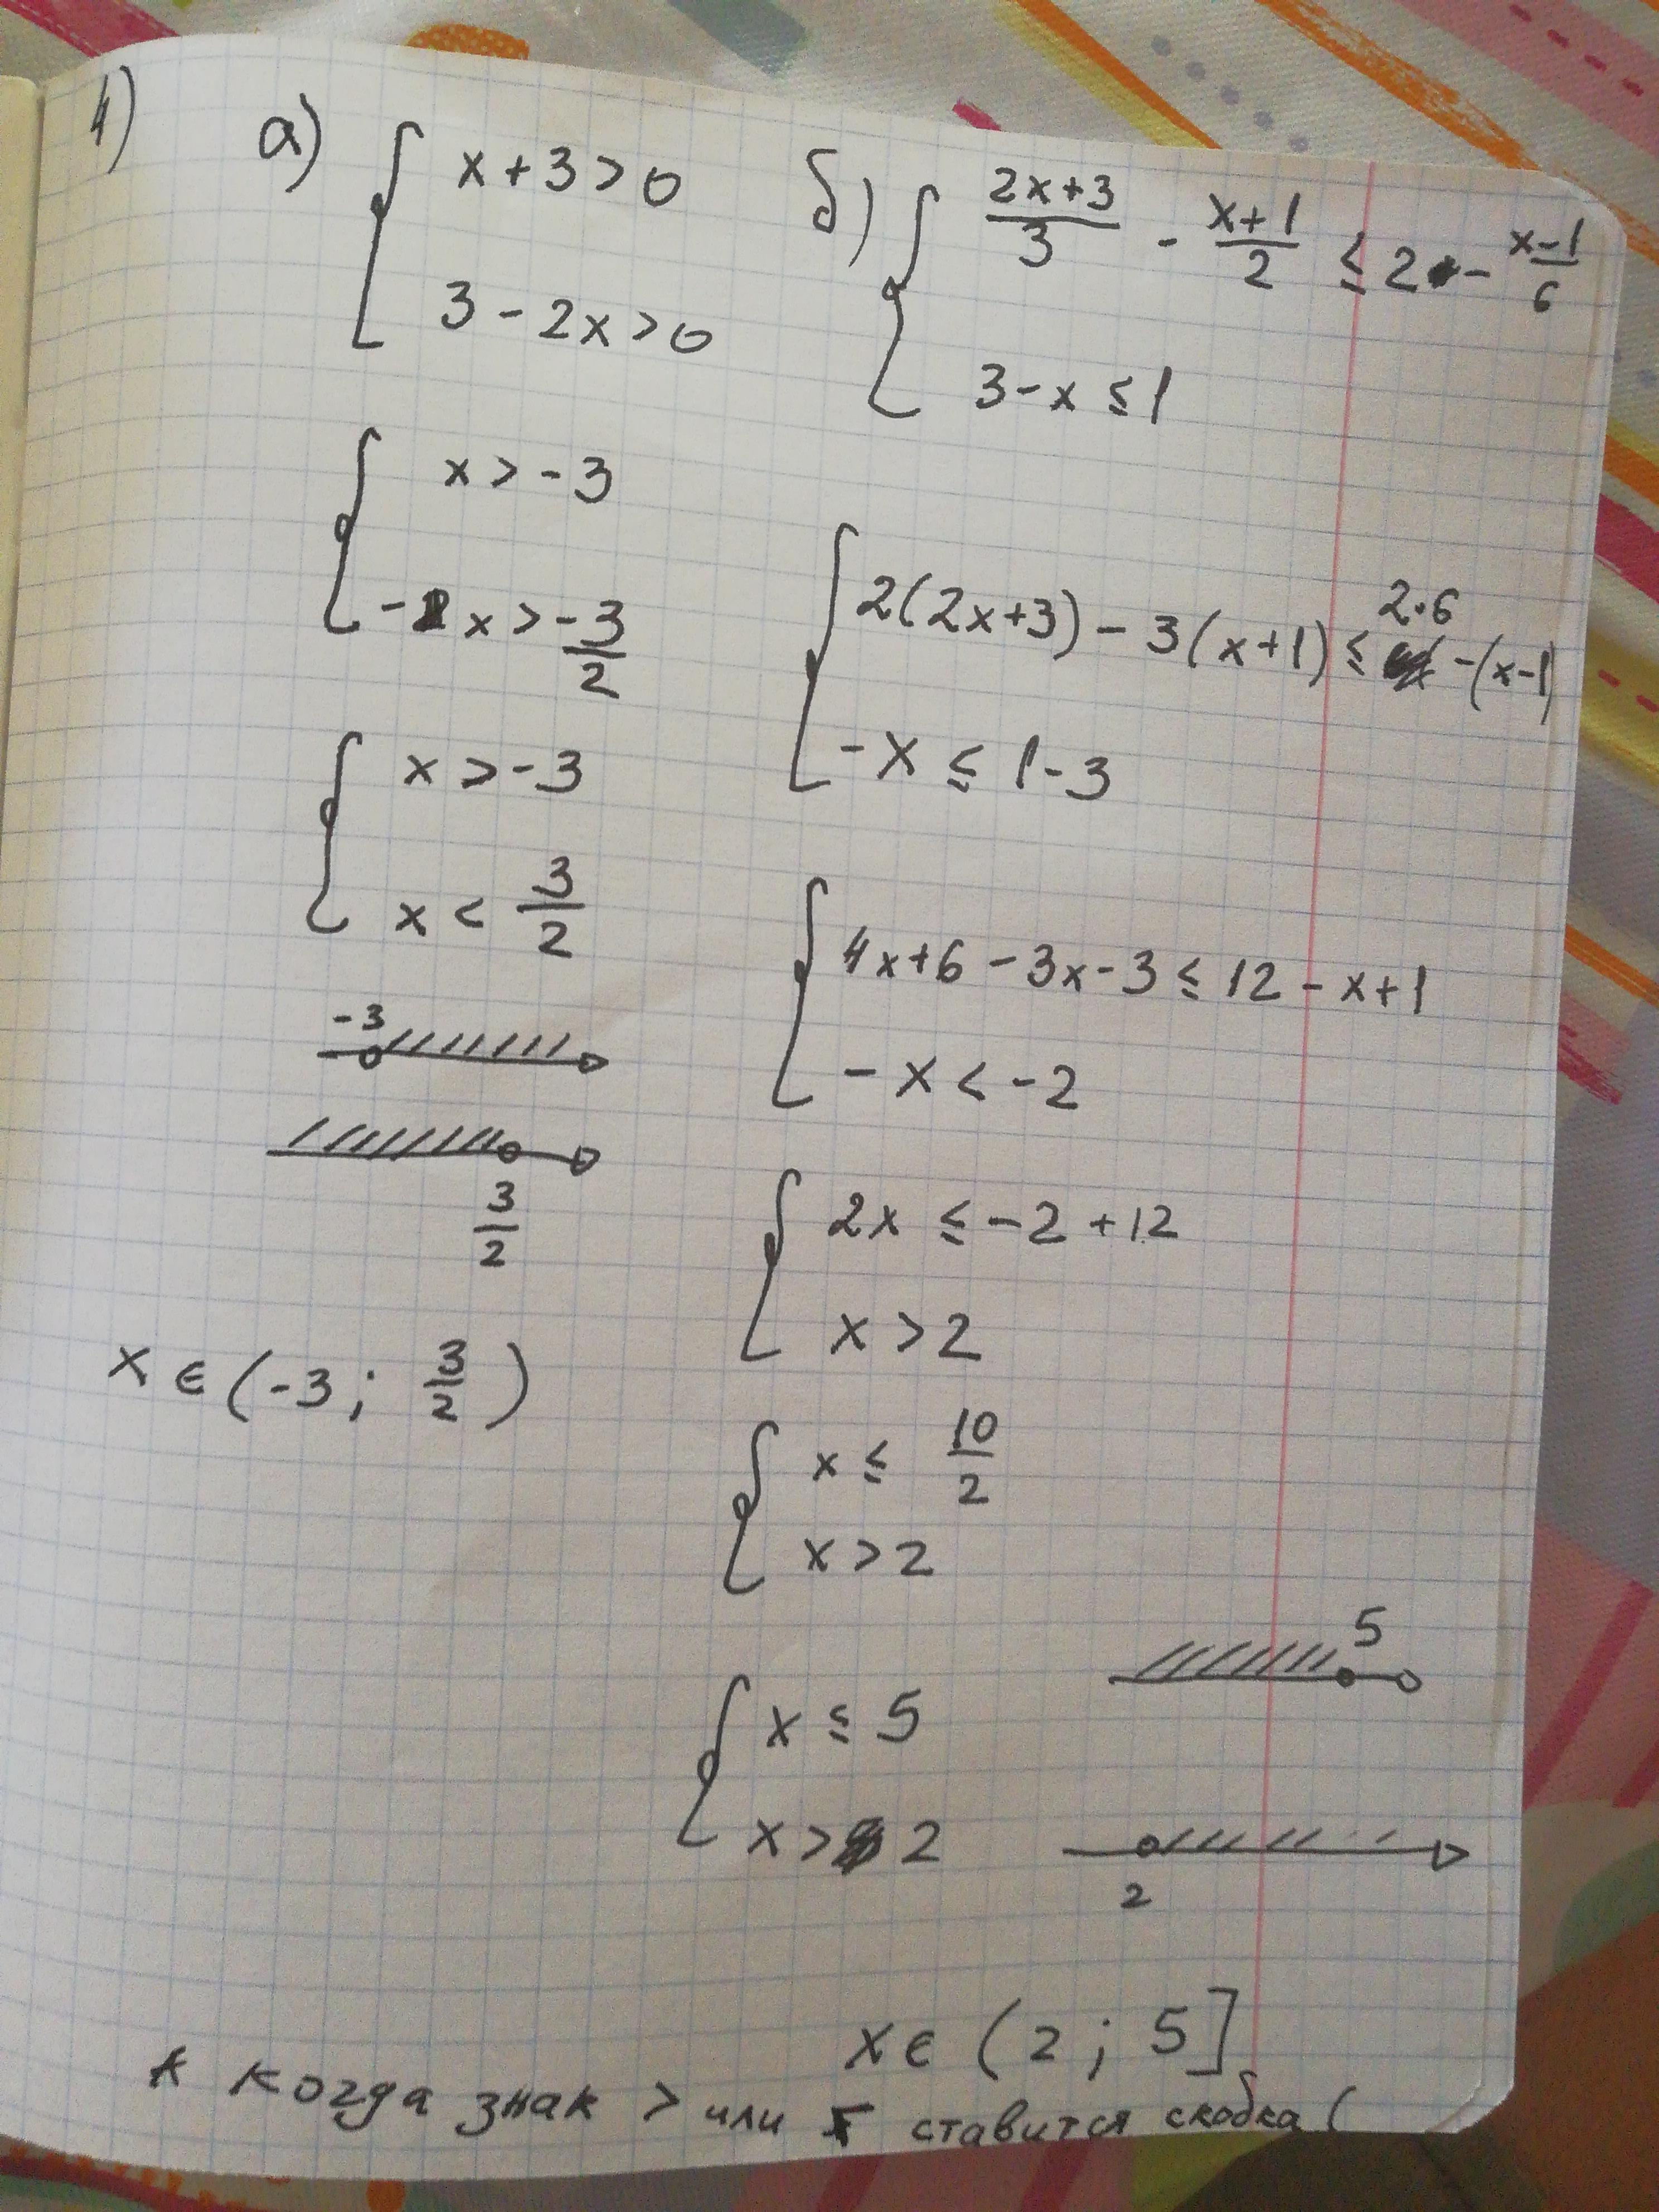 1)
а)
x + 3 > 0
3 - 2x > 0
x > -3
- x > -3/2
x > -3
x < 3/2
-3
3/2
x ∈ (-3; 3/2)
б)
(2x+3)/3 - (x+1)/2 ≤ 2 - (x-1)/6
3 - x ≤ 1
2(2x+3) - 3(x+1) ≤ 2·6 -(x-1)
-x ≤ 1-3
4x+6 - 3x-3 ≤ 12 - x+1
- x < -2
2x ≤ -2 +12
x > 2
x ≤ 10/2
x > 2
x ≤ 5
x > 2
5
2
x ∈ (2; 5]
* когда знак > или < ставится скобка (